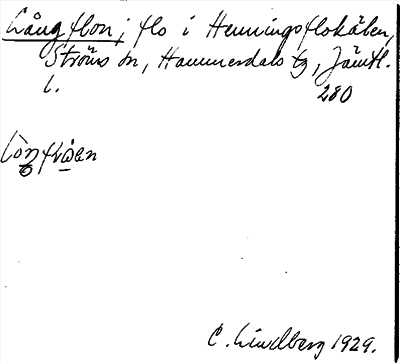 Långflon; flo i Henningsflokälen,
Ströms sn, Hammerdals tg, Jämtl.
l. 280
lòŋflɷ̀en
C. Lindberg 1929.